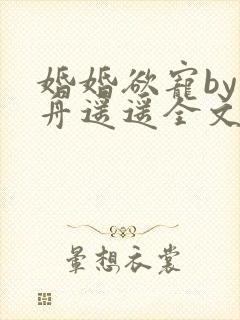 婚婚欲寵by
丹遥遥全文
暈想衣裳